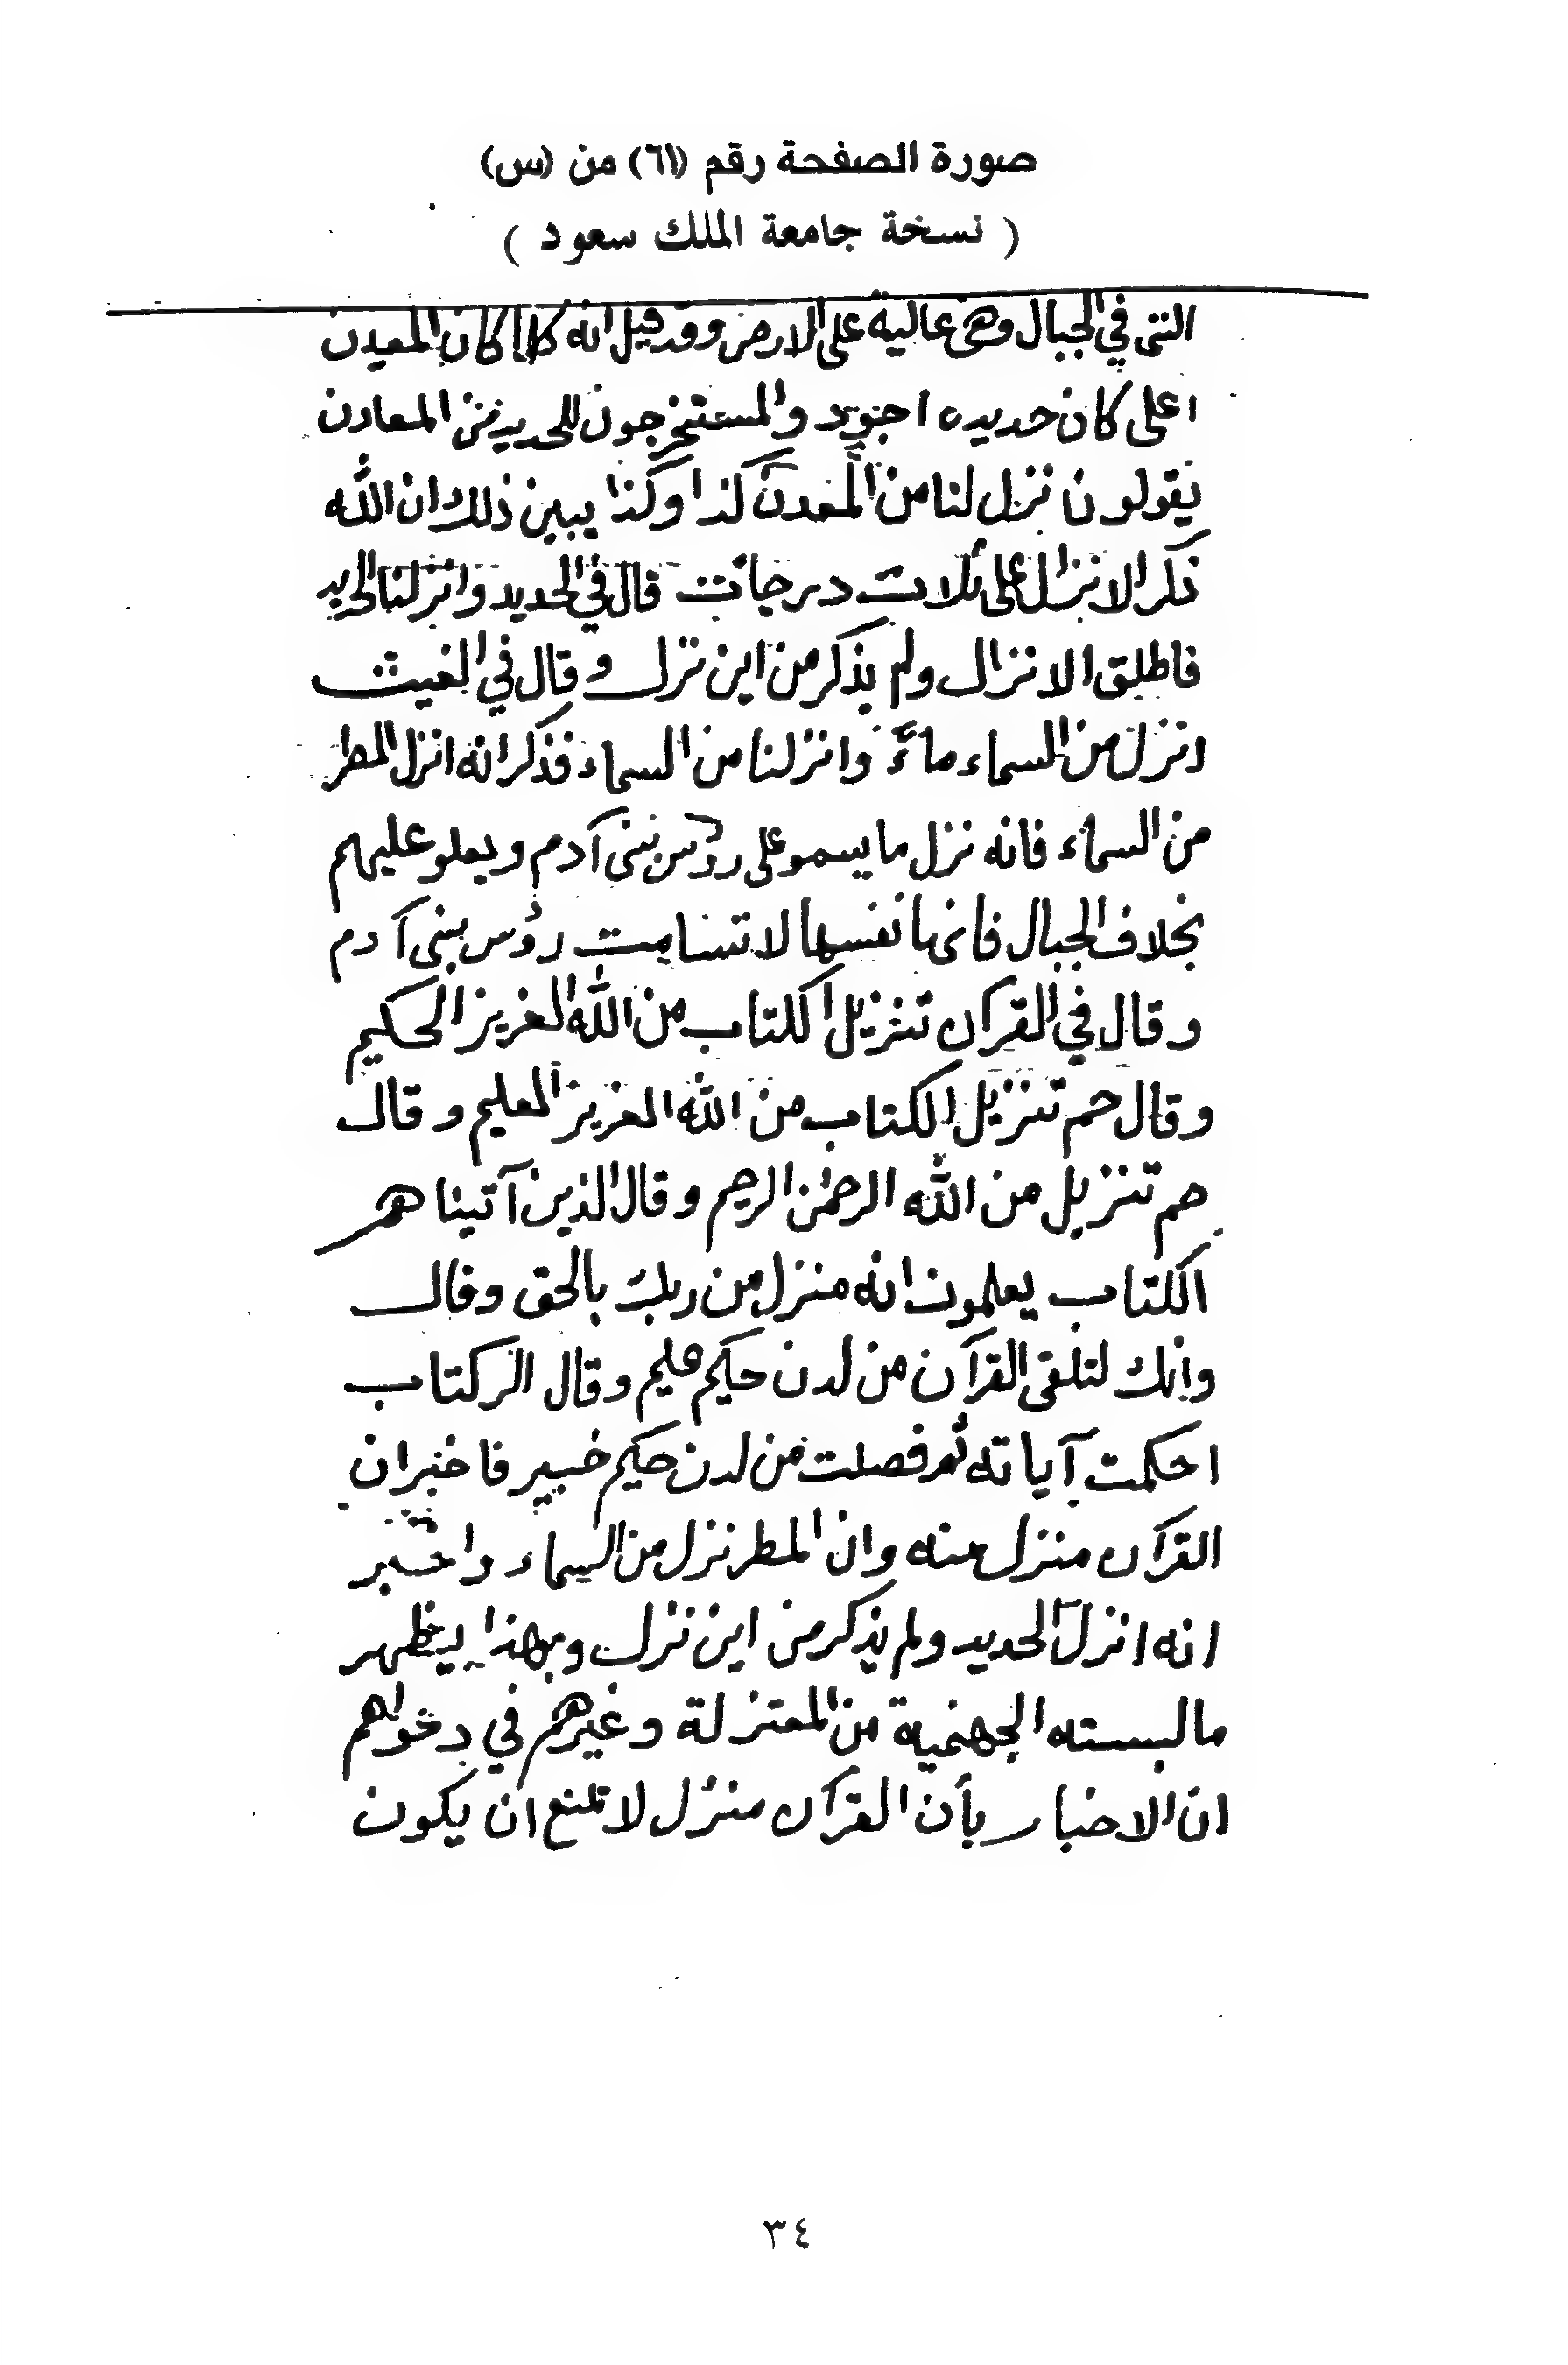 صورة الصفحة رقم (٦١) من (س)
( نسخة جامعة الملك سعود )
التى في الجبال وهى عالية على الارض وقد قيل انه كلما كان المعدن
اعلى كان حديده اجود والمستخرجون للحديد من المعادن
يقولون نزل لنا من المعدن كذا وكذا يبين ذلك ان الله
ذكر الانزال على ثلاث درجات قال في الحديد وانزلنا الحديد
فاطلق الانزال ولم يذكر من اين نزل وقال في الغيث
انزل من السماء ماءً وانزلنا من السماء فذكر انه انزل المطر
من السماء فانه نزل مما يسمو على رؤس بنى آدم ويعلو عليهم
بخلاف الجبال فانها نفسها لا تسامت رؤس بنى آدم
وقال في القرآن تنزيل الكتاب من الله العزيز الحكيم
وقال حم تنزيل الكتاب من الله العزيز العليم وقال
حم تنزيل من الله الرحمٰن الرحيم وقال الذين آتيناهم
الكتاب يعلمون انه منزل من ربك بالحق وقال
وانك لتلقى القرآن من لدن حكيم عليم وقال الر كتاب
احكمت آياته ثم فصلت من لدن حكيم خبير فاخبر ان
القرآن منزل منه وان المطر نزل من السماء واخبر
انه انزل الحديد ولم يذكر من اين نزل وبهذا يظهر
ما لبسته الجهمية من المعتزلة وغيرهم في دعواهم
ان الاخبار بأن القرآن منزل لا تمنع ان يكون
٣٤